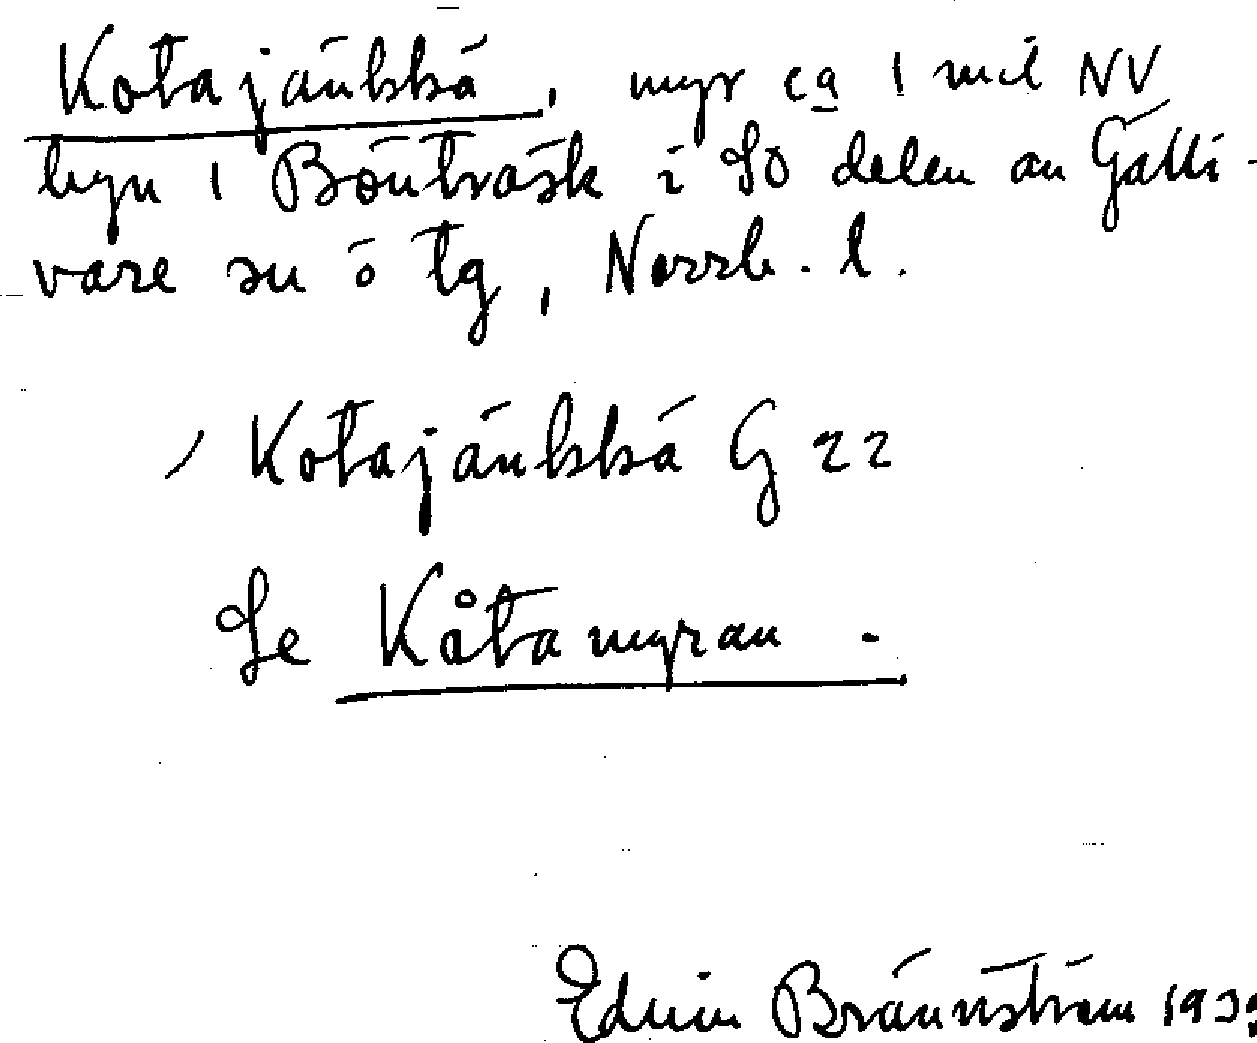 Kotajänkkä, myr ca 1 mil NV
byn i Böuträsk i SO delen av Gälli-
vare sn o tg, Norrb. l.
Kotajänkkä G 22
Se Kåtamyran.
Edvin Brännström